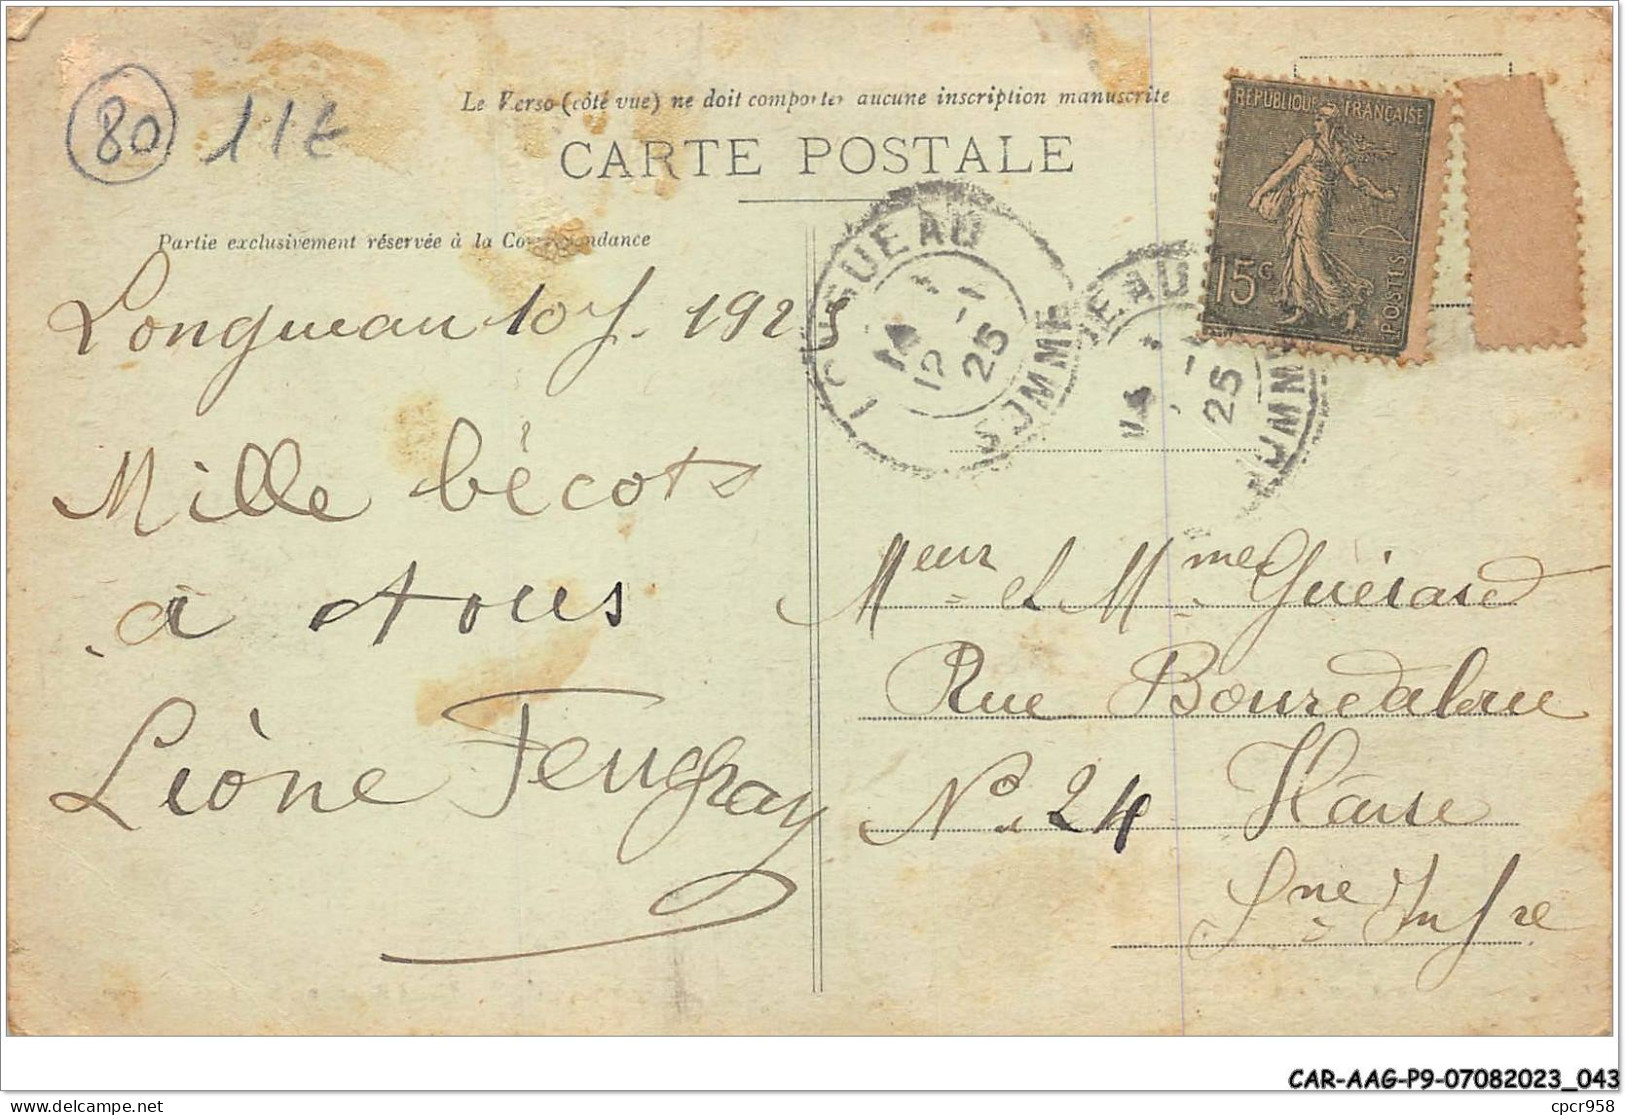 80
11€
Le Verso (côté vue) ne doit comporter aucune inscription manuscrite
CARTE POSTALE
Partie exclusivement réservée à la Correspondance
RÉPUBLIQUE FRANÇAISE
15c
POSTES
LONGUEAU
12 -1
25
SOMME
EAU
-1
25
SOMME
Longueau 10 J. 1925
Mille bécots
a tous
Lèone Feugray
Meur et Mme Guérard
Rue Bourdaloue
No. 24 Hâvre
Sne Infre
CAR-AAG-P9-07082023_043
delcampe.net
cpcr958